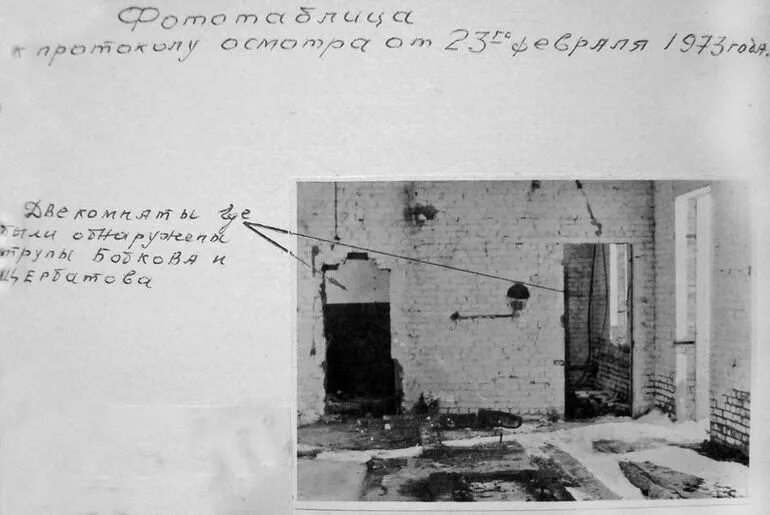 Фототаблица
к протоколу осмотра от 23го февраля 1973 года.
Две комнаты где
были обнаружены
трупы Бобкова и
Щербатова